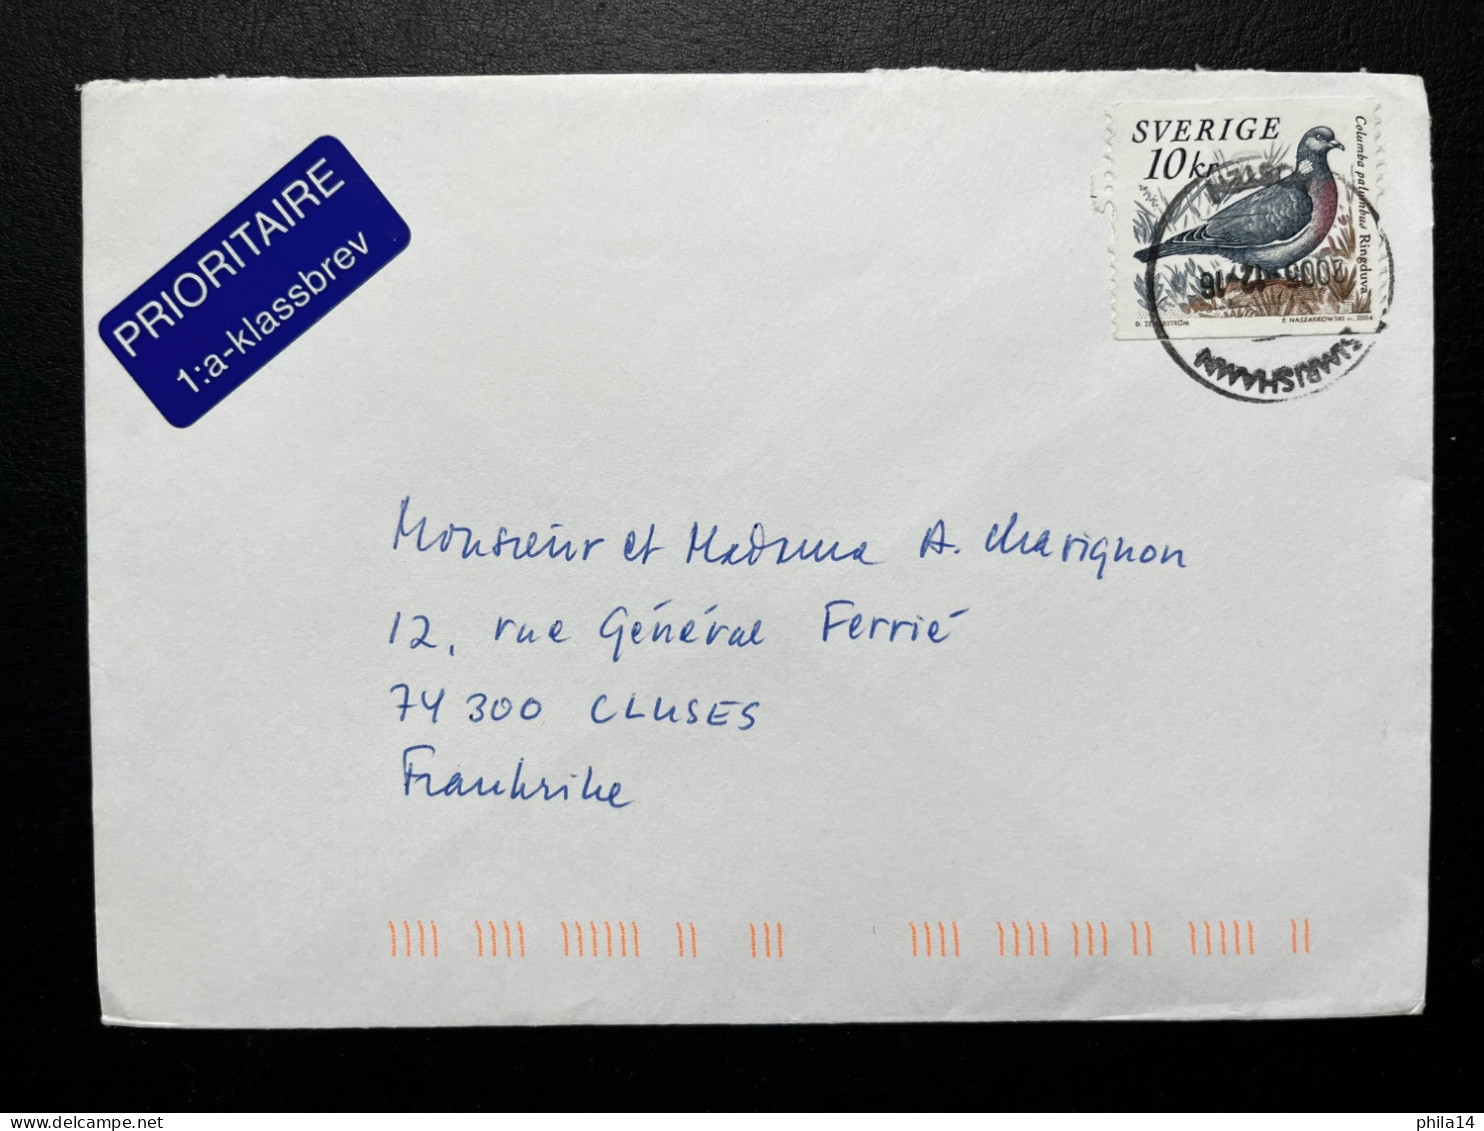 PRIORITAIRE
1:a-klassbrev
SVERIGE
10 kr
Columba palumbus Ringduva
P. NASZARKOWSKI sc. 2004
2005-12-16
SIMRISHAMN
Monsieur et Madame A. Charignon
12, rue Général Ferrié
74 300 CLUSES
Frankrike
phila14